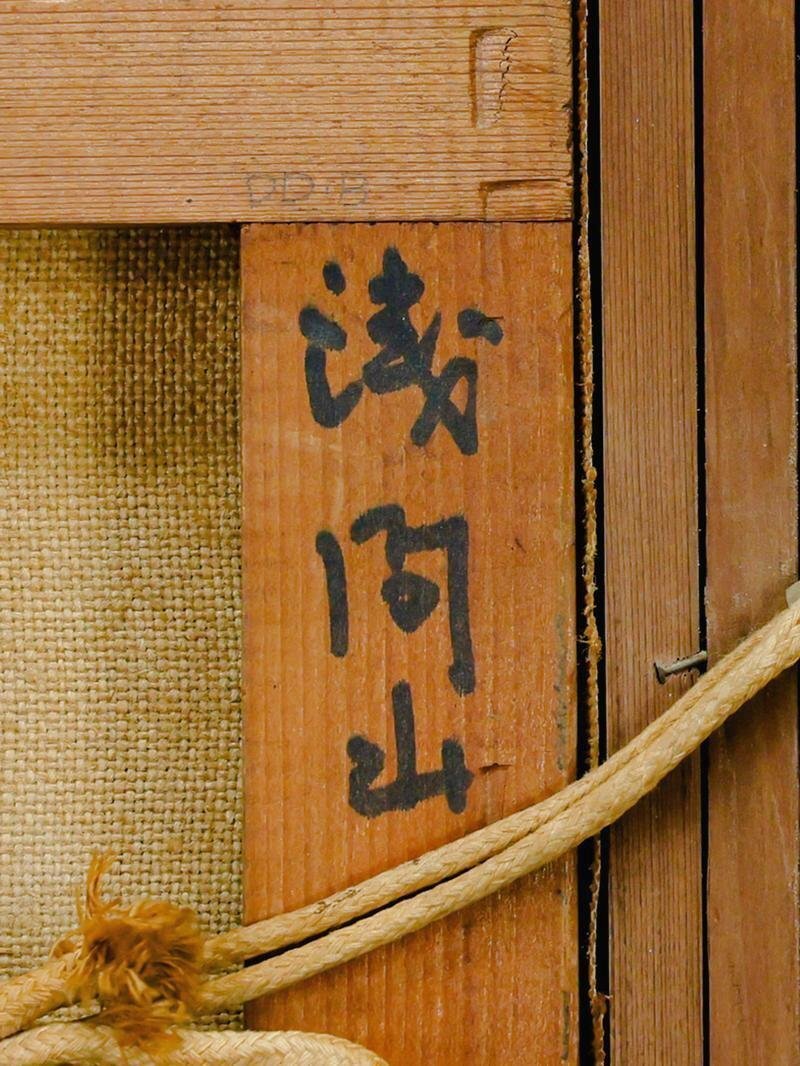 DD・B
浅間山